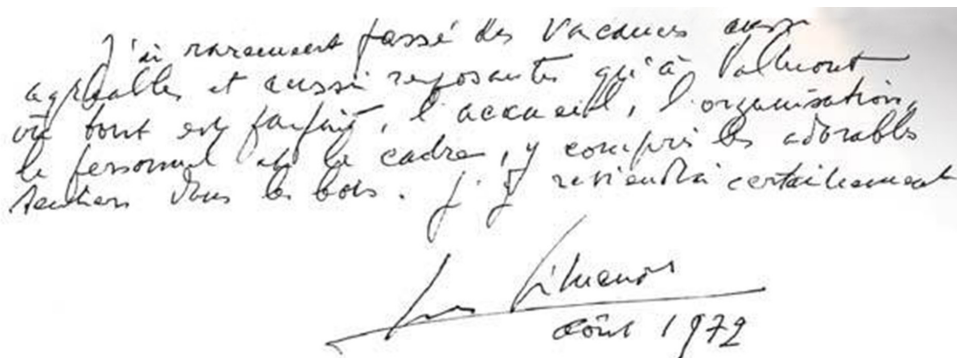 J'ai rarement passé des vacances aussi
agréables et aussi reposantes qu'à Valmont
où tout est parfait, l'accueil, l'organisation,
le personnel et le cadre, y compris les adorables
sentiers dans les bois. J'y reviendrai certainement
Simenon
août 1972